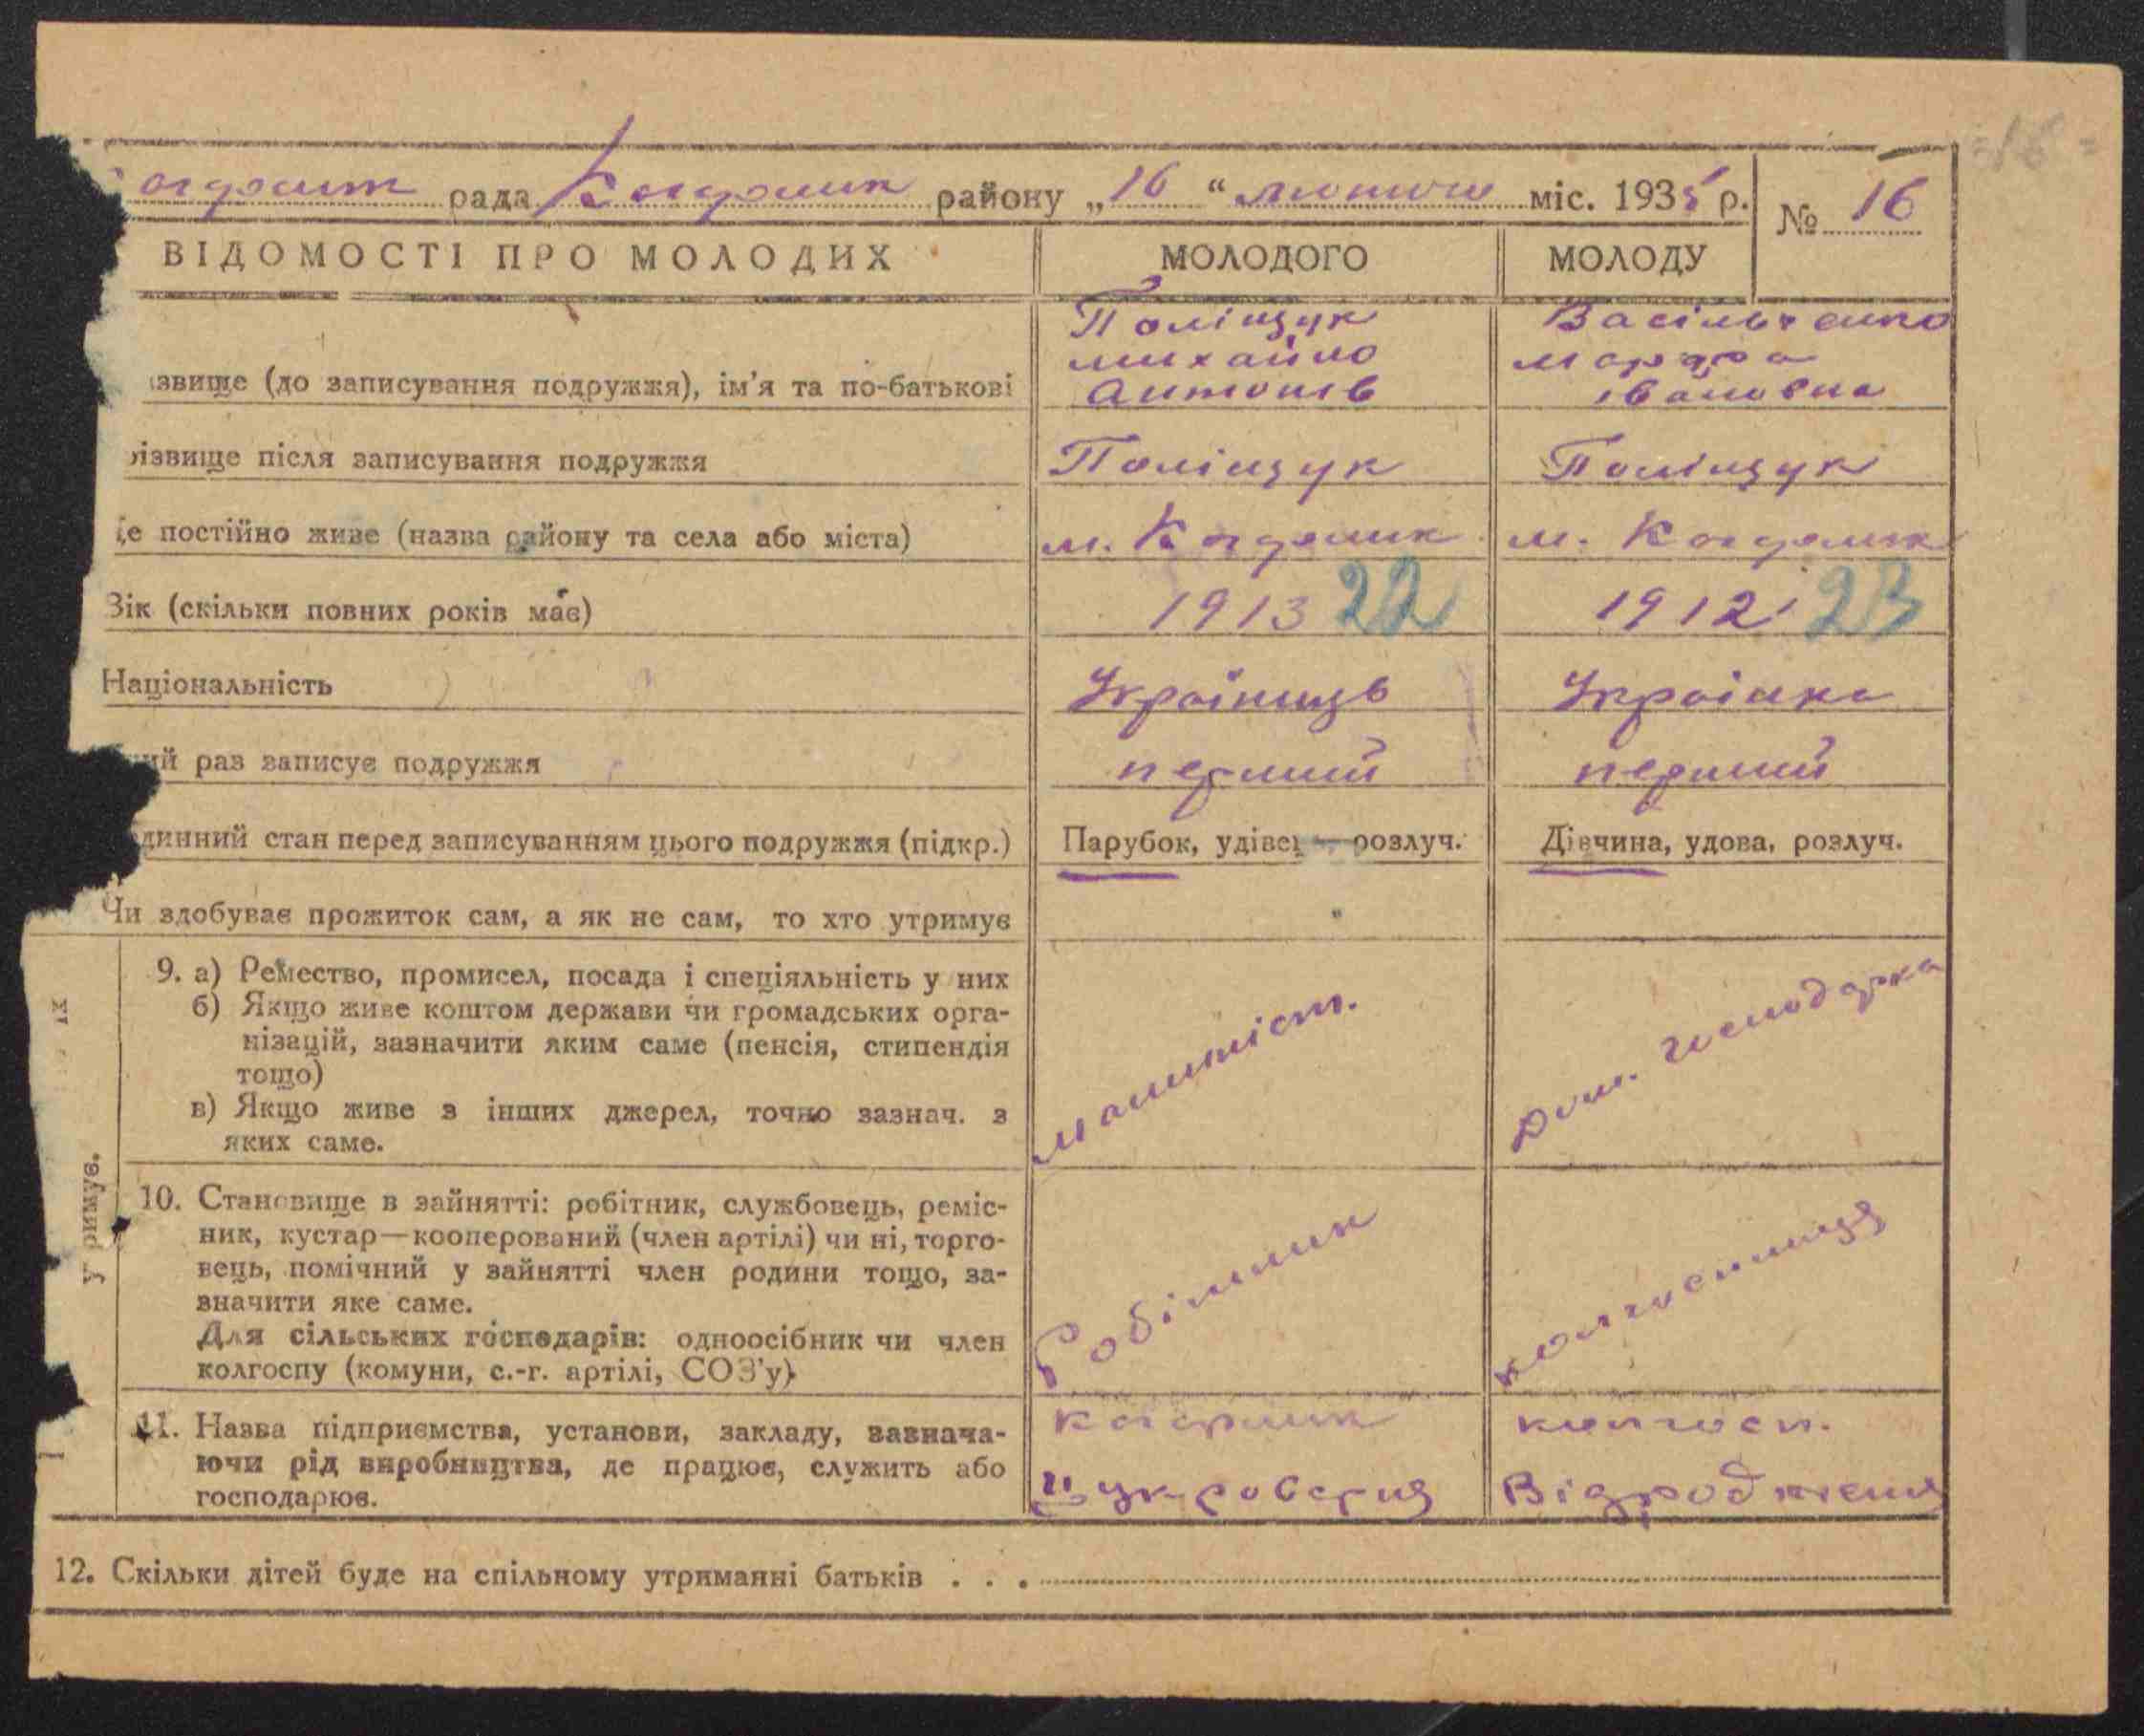 рада Кагарлик району „16“ лютого міс. 1935 р. № 16
ВІДОМОСТІ ПРО МОЛОДИХ МОЛОДОГО МОЛОДУ
звище (до записування подружжя), ім'я та по-батькові
Поліщук
михайло
Антонів
Васільченко
марфа
івановна
різвище після записування подружжя Поліщук Поліщук
е постійно живе (назва району та села або міста) м. Кагарлик м. Кагарлик
Вік (скільки повних років має) 1913 22 1912 23
Національність Українець Українка
ий раз записує подружжя перший перший
динний стан перед записуванням цього подружжя (підкр.) Парубок, удівец — розлуч. Дівчина, удова, розлуч.
Чи здобуває прожиток сам, а як не сам, то хто утримує
9. а) Ремество, промисел, посада і спеціяльність у них
б) Якщо живе коштом держави чи громадських орга-
нізацій, зазначити яким саме (пенсія, стипендія
тощо)
в) Якщо живе з інших джерел, точно зазнач. з
яких саме.
машиніст.
дом. господарка
10. Становище в зайнятті: робітник, службовець, реміс-
ник, кустар—кооперований (член артілі) чи ні, торго-
вець, помічний у зайнятті член родини тощо, за-
значити яке саме.
Для сільських господарів: одноосібник чи член
колгоспу (комуни, с.-г. артілі, СОЗ'у).
Робітник
колгоспниця
11. Назва підприємства, установи, закладу, зазнача-
ючи рід виробництва, де працює, служить або
господарює.
кагарлик
Цукроварня
колгосп.
Відродження
12. Скільки дітей буде на спільному утриманні батьків . . .